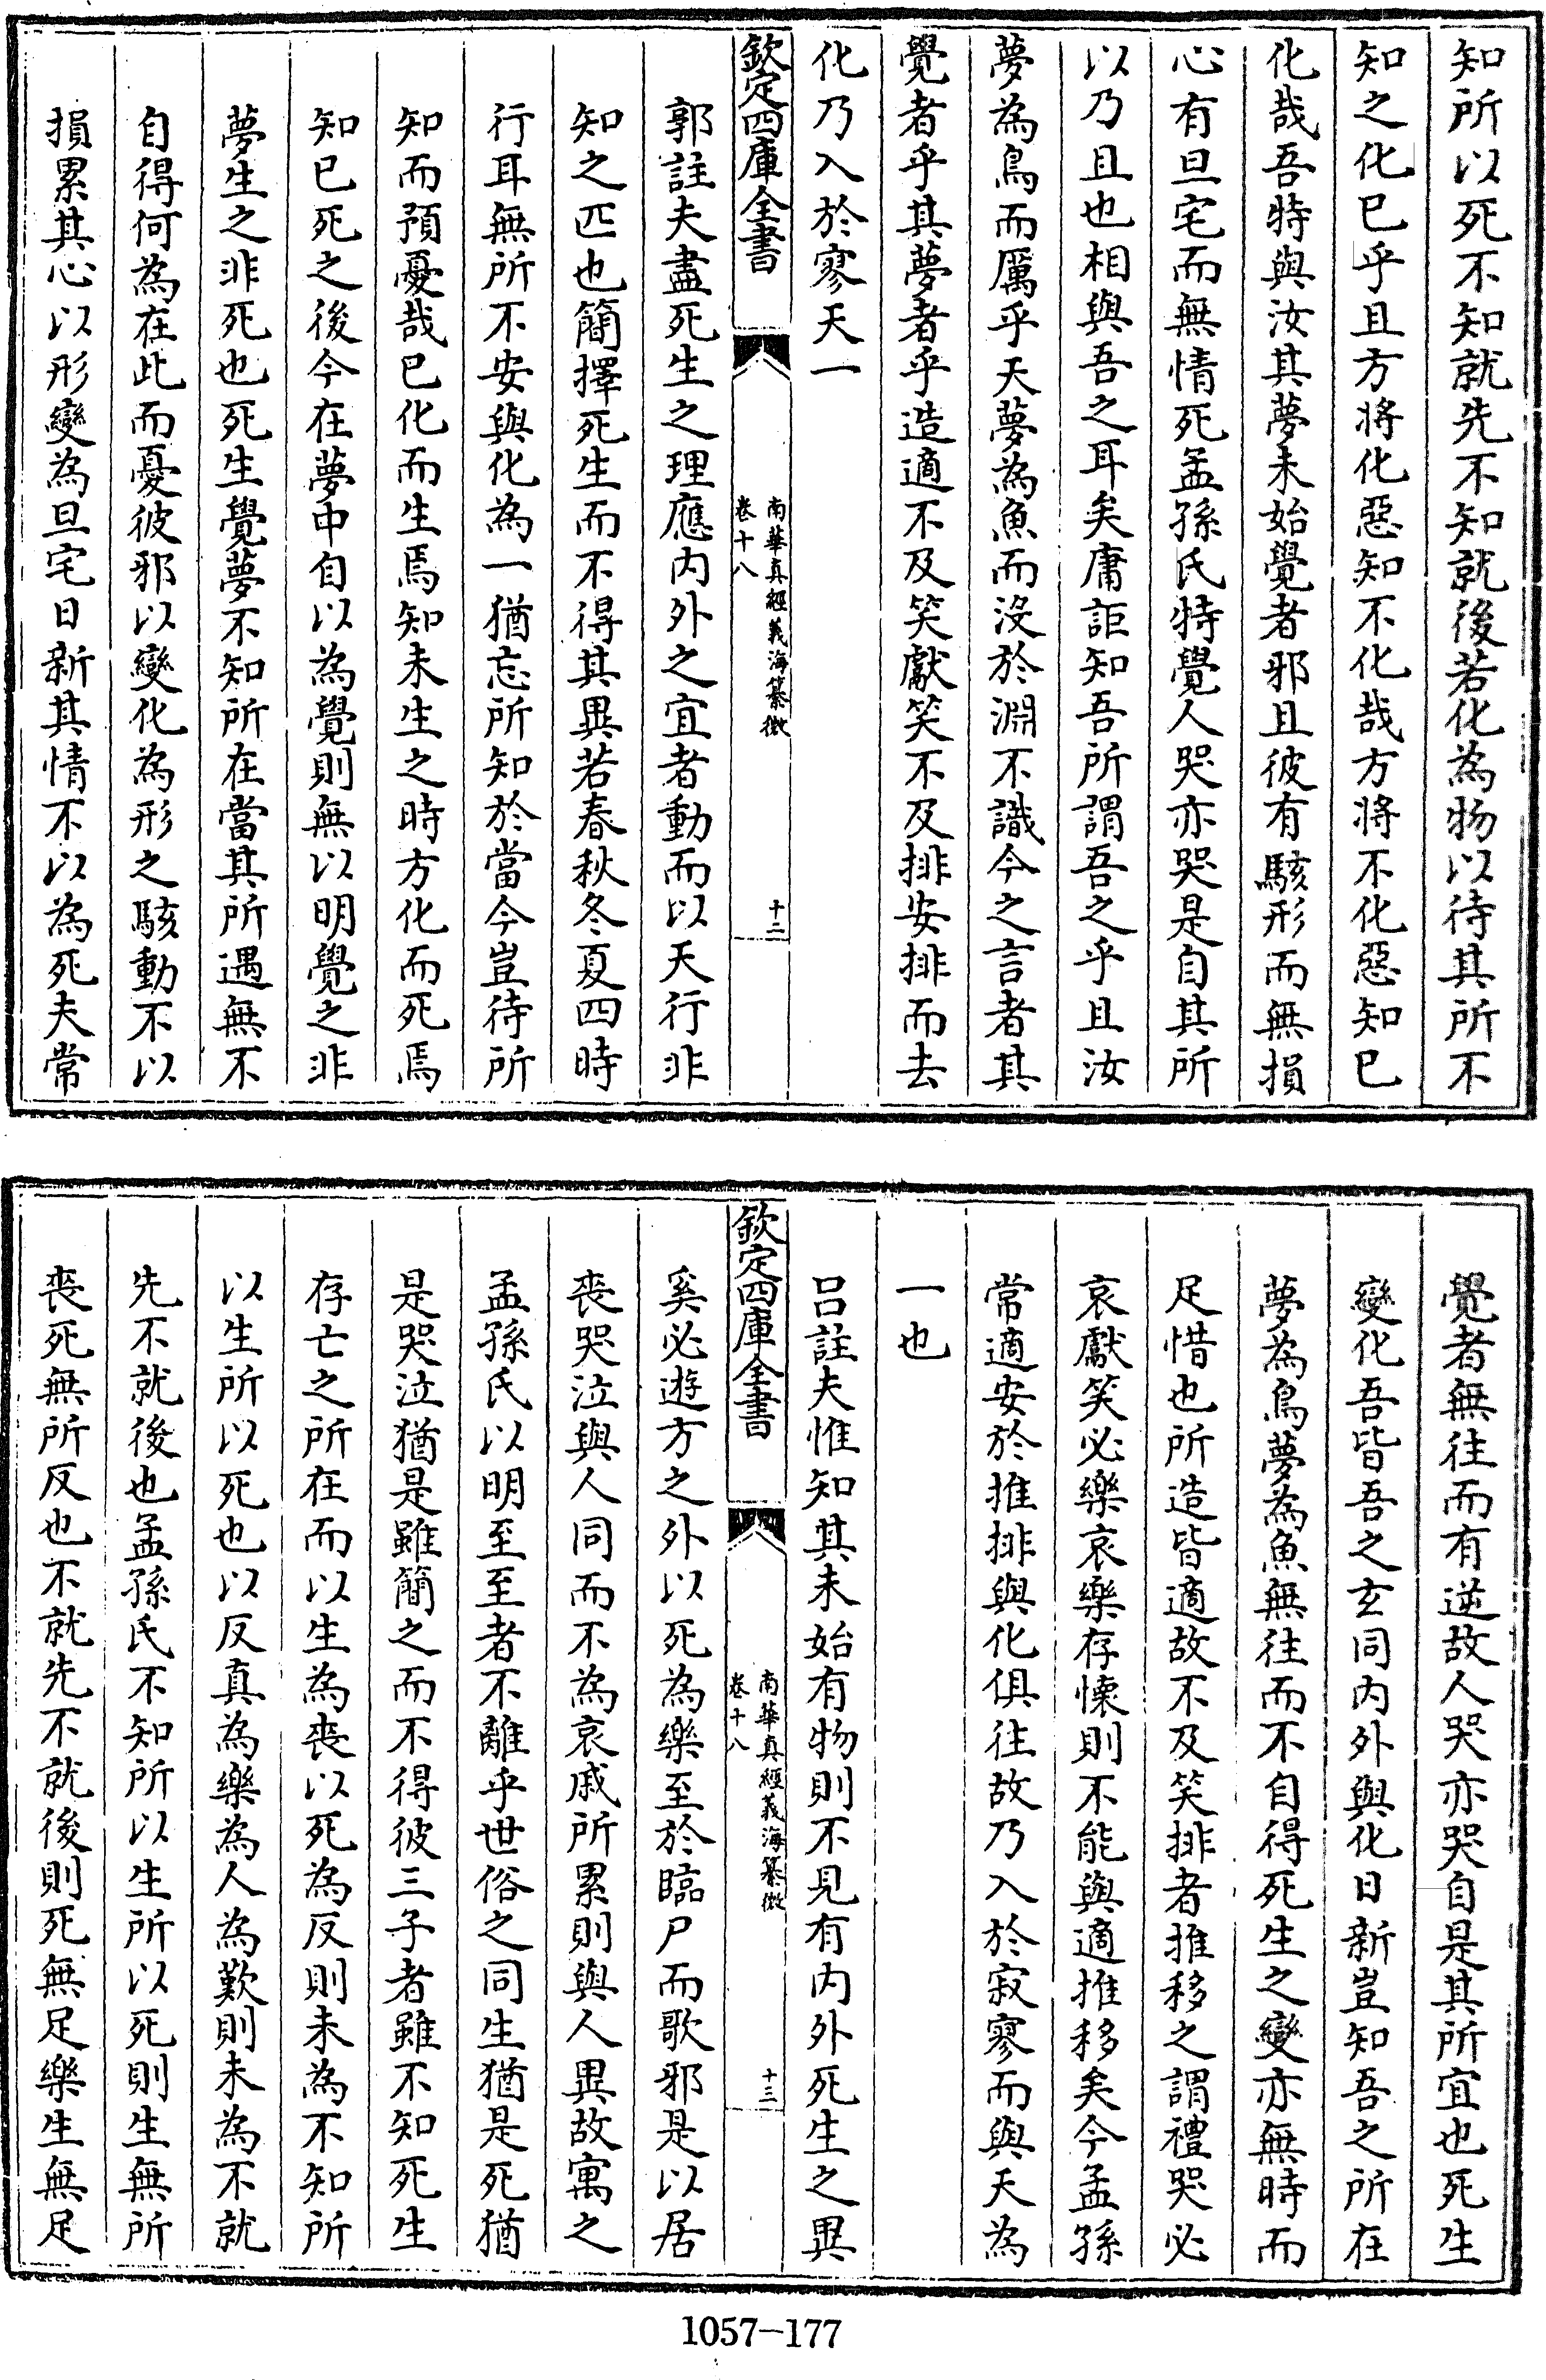 知所以死不知就先不知就後若化為物以待其所不
知之化已乎且方将化惡知不化哉方将不化惡知已
化哉吾特與汝其夢未始覺者邪且彼有駭形而無損
心有旦宅而無情死孟孫氏特覺人哭亦哭是自其所
以乃且也相與吾之耳矣庸詎知吾所謂吾之乎且汝
夢為鳥而厲乎天夢為魚而沒於淵不識今之言者其
覺者乎其夢者乎造適不及笑獻笑不及排安排而去
化乃入於寥天一
欽定四庫全書
南華真經義海纂微
卷十八
十二
郭註夫盡死生之理應内外之宜者動而以天行非
知之匹也簡擇死生而不得其異若春秋冬夏四時
行耳無所不安與化為一猶忘所知於當今豈待所
知而預憂哉已化而生焉知未生之時方化而死焉
知已死之後今在夢中自以為覺則無以明覺之非
夢生之非死也死生覺夢不知所在當其所遇無不
自得何為在此而憂彼邪以變化為形之駭動不以
損累其心以形變為旦宅日新其情不以為死夫常
覺者無往而有逆故人哭亦哭自是其所宜也死生
變化吾皆吾之玄同内外與化日新豈知吾之所在
夢為鳥夢為魚無往而不自得死生之變亦無時而
足惜也所造皆適故不及笑排者推移之謂禮哭必
哀獻笑必樂哀樂存懐則不能與適推移矣今孟孫
常適安於推排與化俱往故乃入於寂寥而與天為
一也
吕註夫惟知其未始有物則不見有内外死生之異
欽定四庫全書
南華真經義海纂微
卷十八
十三
奚必遊方之外以死為樂至於臨尸而歌邪是以居
喪哭泣與人同而不為哀戚所累則與人異故寓之
孟孫氏以明至至者不離乎世俗之同生猶是死猶
是哭泣猶是雖簡之而不得彼三子者雖不知死生
存亡之所在而以生為喪以死為反則未為不知所
以生所以死也以反真為樂為人為歎則未為不就
先不就後也孟孫氏不知所以生所以死則生無所
喪死無所反也不就先不就後則死無足樂生無足
1057-177